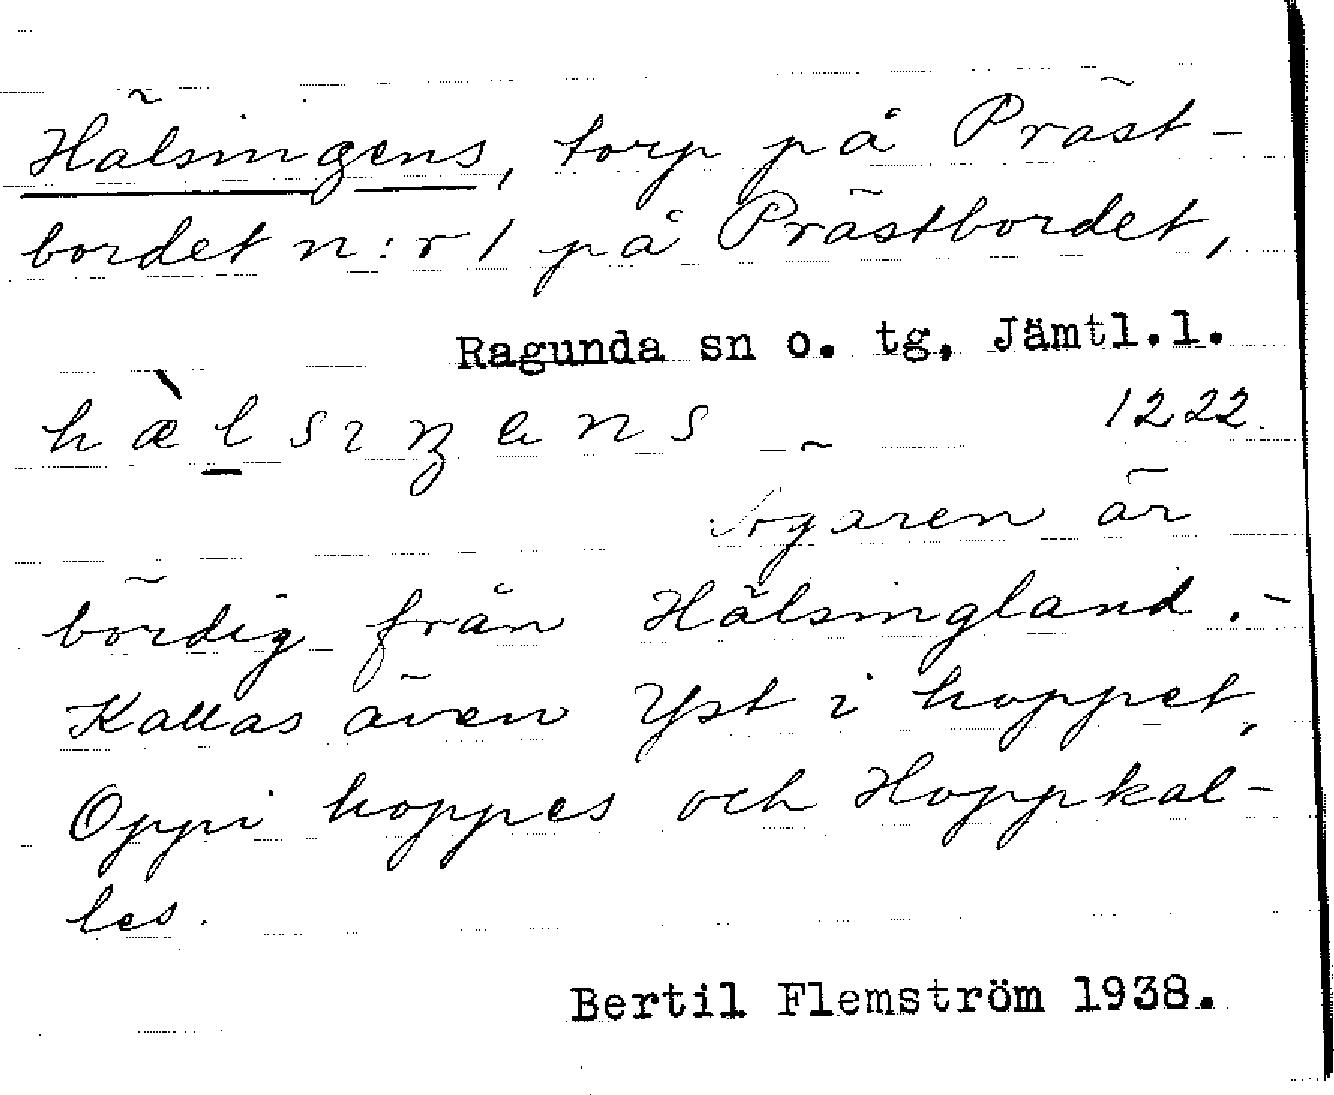 Hälsingens, torp på Präst-
bordet n:r 1 på Prästbordet,
Ragunda sn o. tg. Jämtl.l.
hæ̀lsıŋens – 1222
Ägaren är
bördig från Hälsingland. –
Kallas även Yst i hoppet,
Oppi hoppes och Hoppkal-
les.
Bertil Flemström 1938.